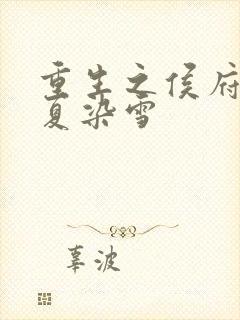 重生之侯府
复染雪
辜波